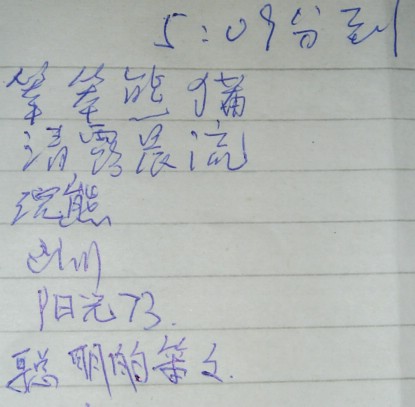 5:09分到
笨笨熊猫
清露晨流
浣熊
阳光73.
聪明的笨